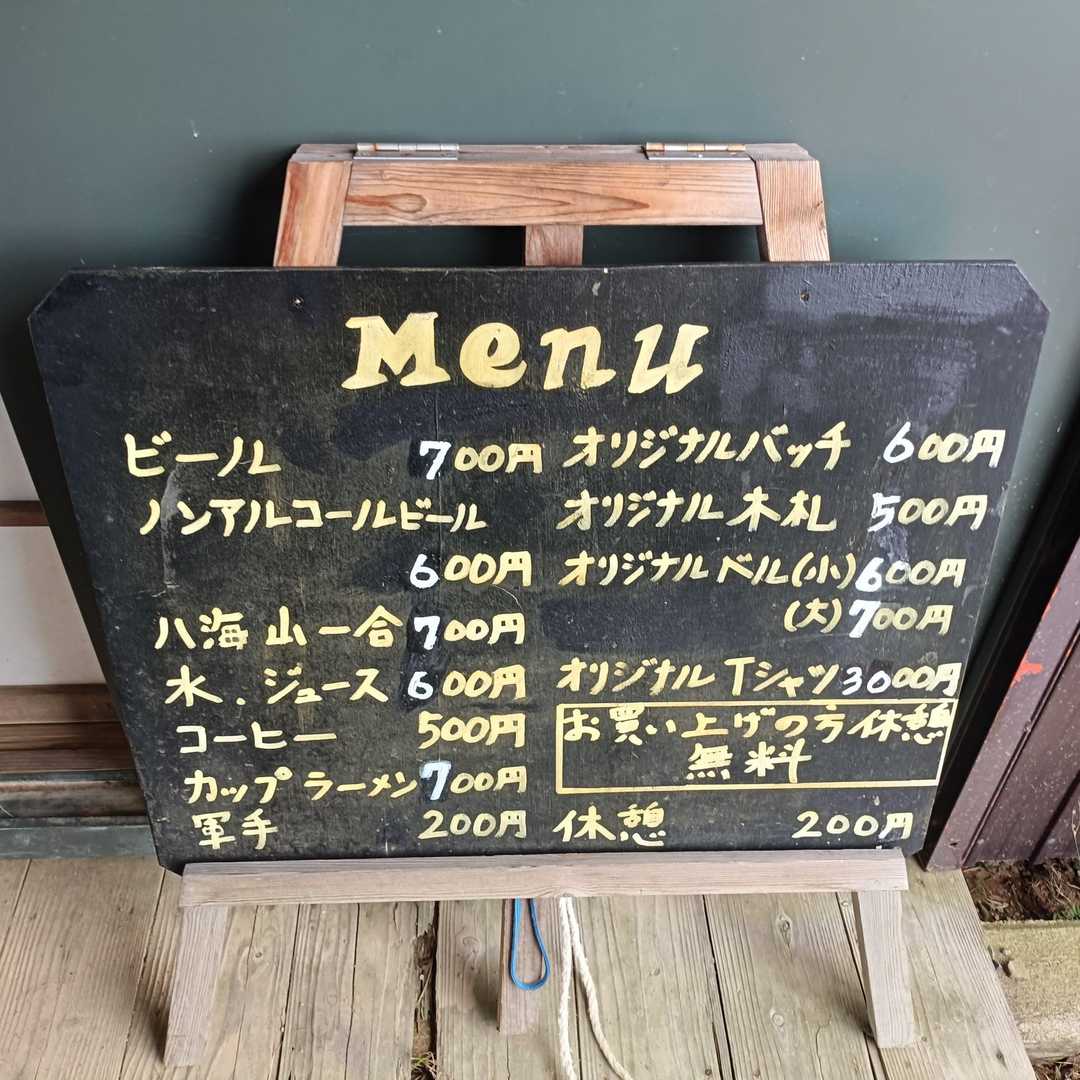 Menu
ビール 700円
ノンアルコールビール
600円
八海山一合 700円
水.ジュース 600円
コーヒー 500円
カップラーメン 700円
軍手 200円
オリジナルバッチ 600円
オリジナル木札 500円
オリジナルベル(小) 600円
(大) 700円
オリジナルTシャツ 3000円
お買い上げの方休憩
無料
休憩 200円